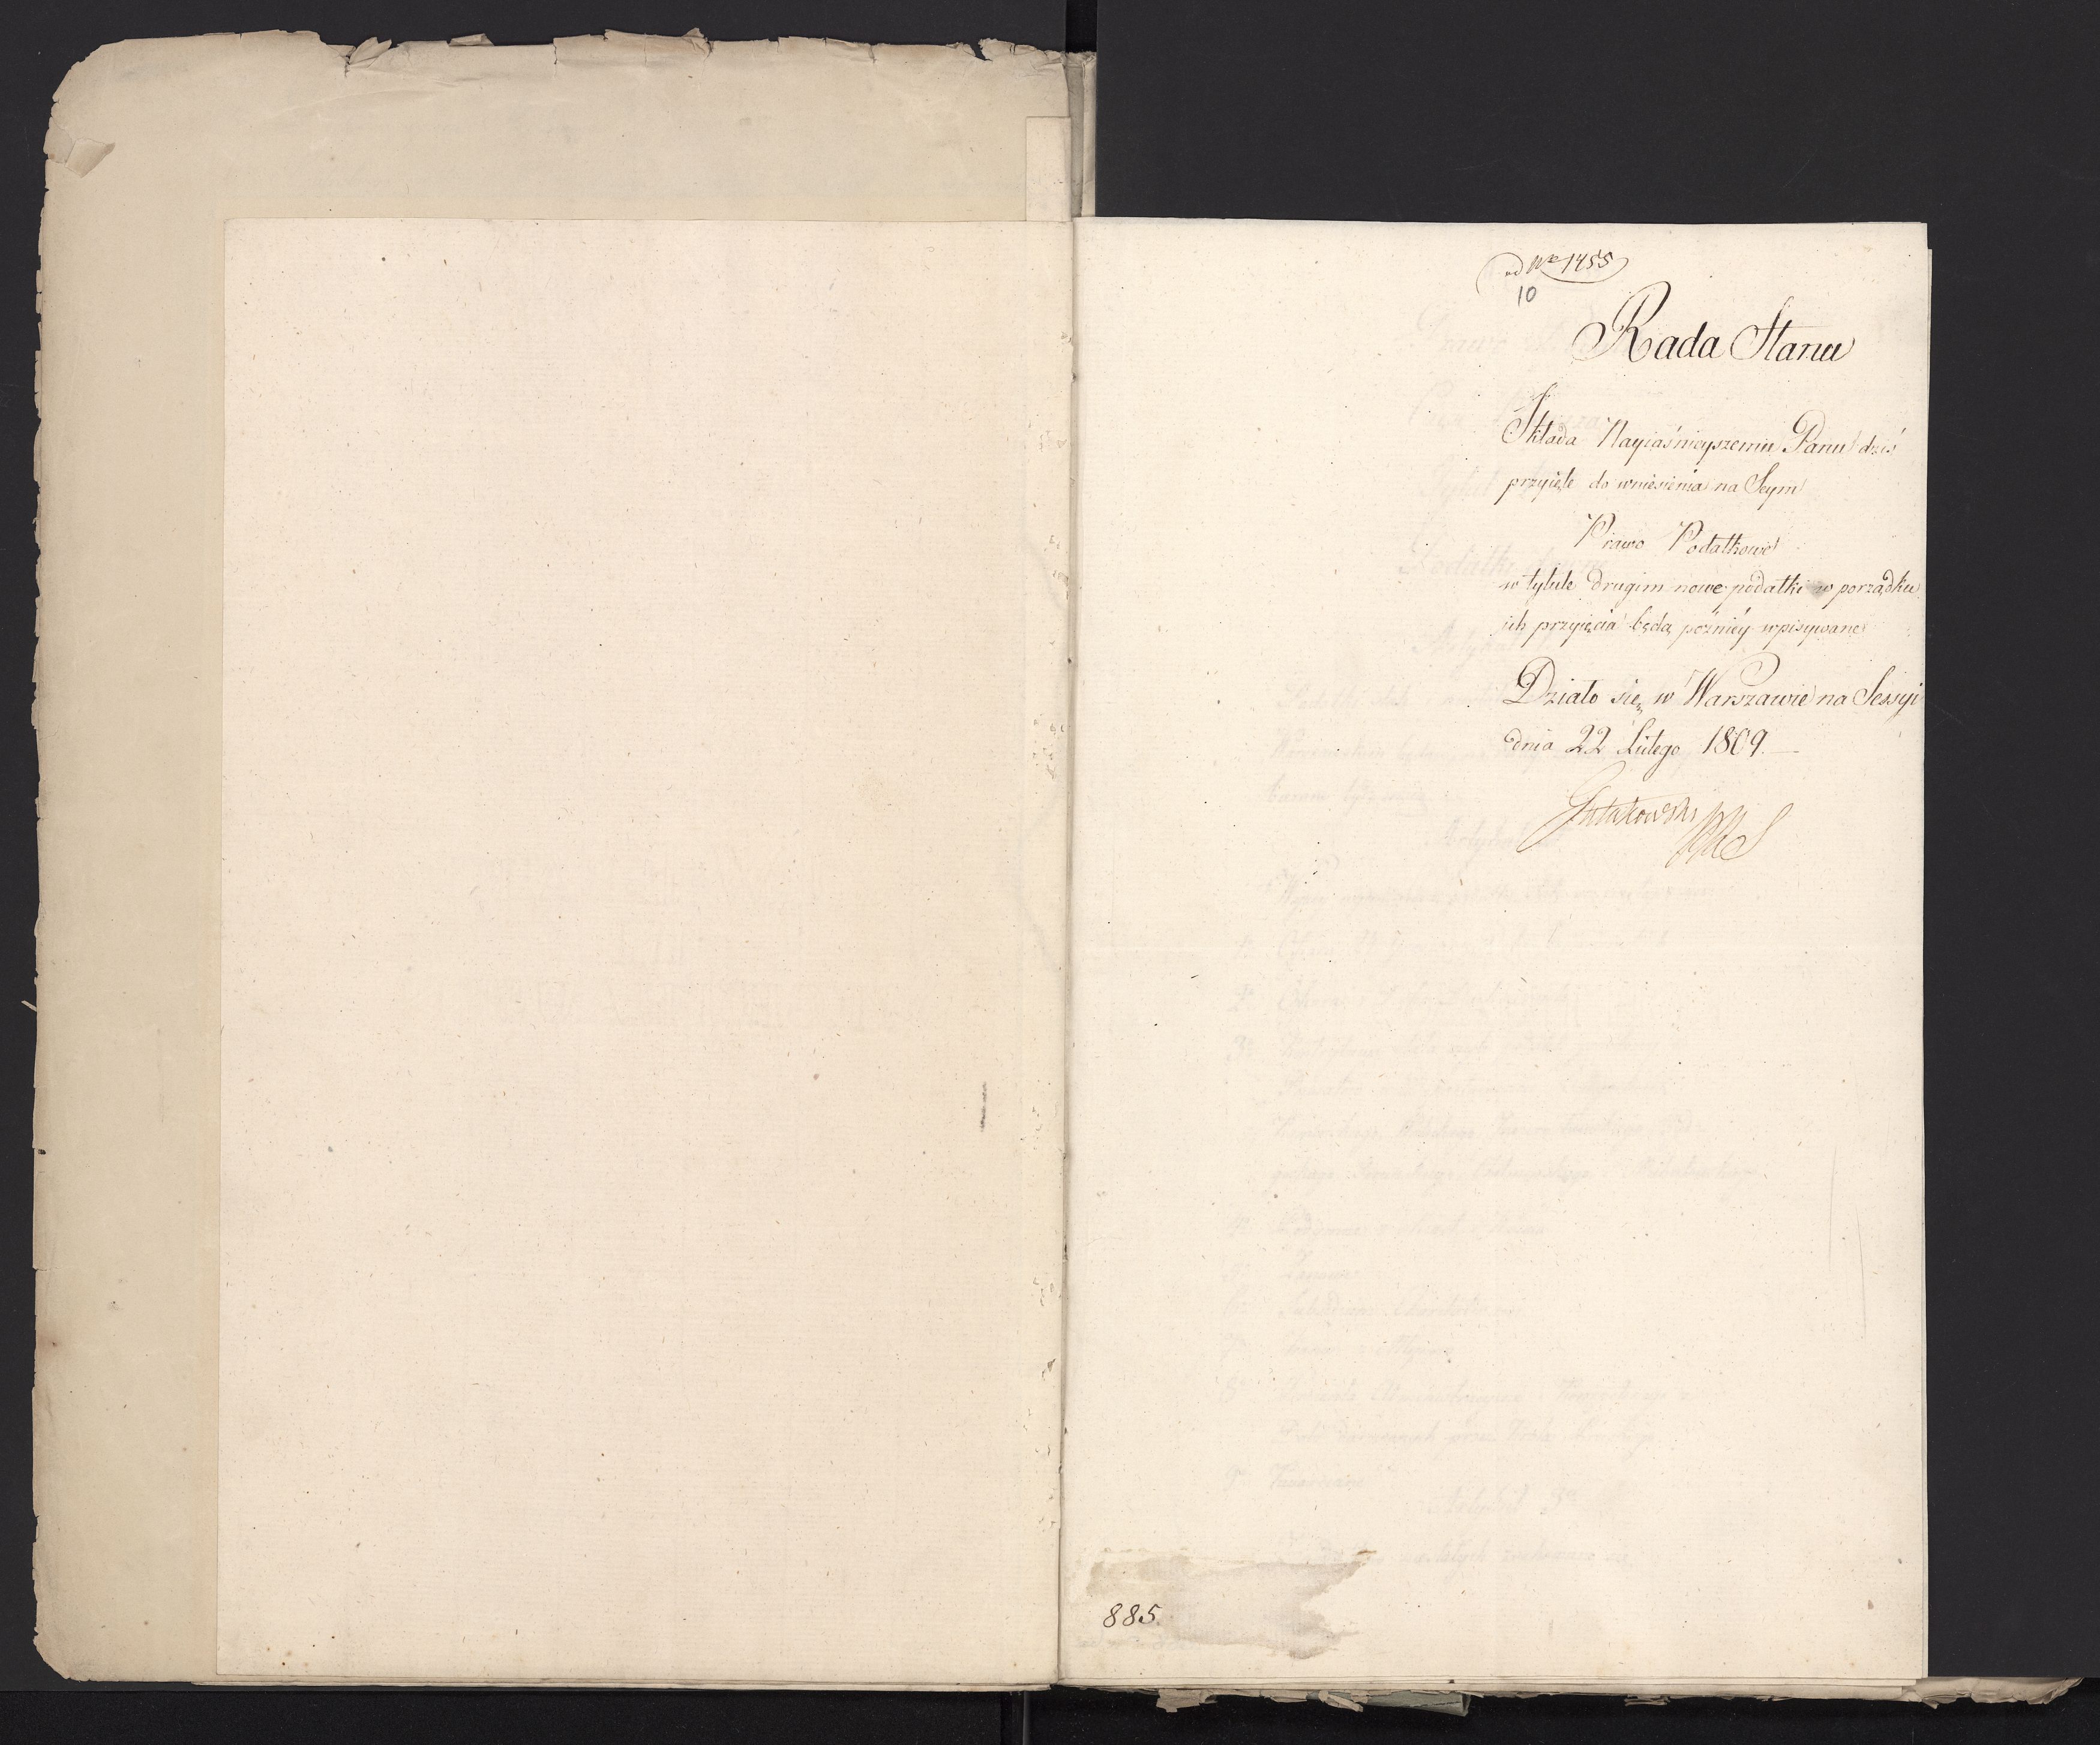 ad Nro 1455
10
Rada Stanu
Składa Nayiaśnieyszemu Panu dziś
przyięte do wniesienia na Seym
Prawo Podatkowe
w tytule drugim nowe podatki w porządku
ich przyięcia będą poźniey wpisywane
Działo się w Warszawie na Sessyi
dnia 22 Lutego 1809.
Gutakowski PRS
885.